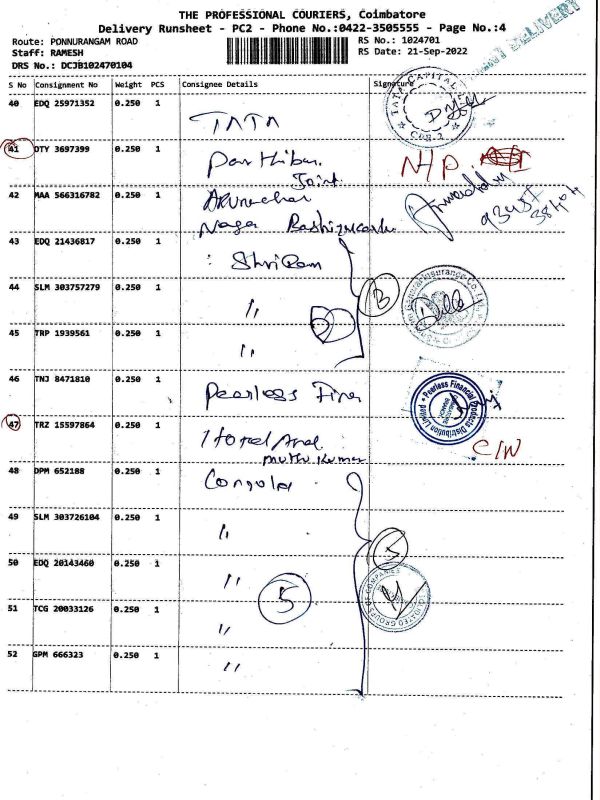 THE PROFESSIONAL COURIERS, Coimbatore
Delivery Runsheet - PC2 - Phone No.:0422-3505555 - Page No.:4
Route: PONNURANGAM ROAD
RS No.: 1024701
Staff: RAMESH
RS Date: 21-Sep-2022
DRS No.: DCJB102470104
DELIVERY
S No Consignment No Weight PCS Consignee Details Signature
40 EDQ 25971352 0.250 1 TATA
TATA CAPITAL
CBE-2
41 DTY 3697399 0.250 1 Parthiban
Joint
N/P
42 MAA 566316782 0.250 1 Arunachal
Naga
43 EDQ 21436817 0.250 1 : ShriRam
44 SLM 303757279 0.250 1 "
General Insurance Co. Ltd.
3
B
45 TRP 1939561 0.250 1 "
46 TNJ 8471810 0.250 1 Peerless Finn
Peerless Financial Products Distribution Limited
COIMBATORE BRANCH
47 TRZ 15597864 0.250 1 Hotel
muthu kumar
C/N
48 DPM 652188 0.250 1
49 SLM 303726104 0.250 1 "
5
50 EDQ 20143460 0.250 1 "
5
GROUPS OF COMPANIES
51 TCG 20033126 0.250 1 "
52 GPM 666323 0.250 1 "